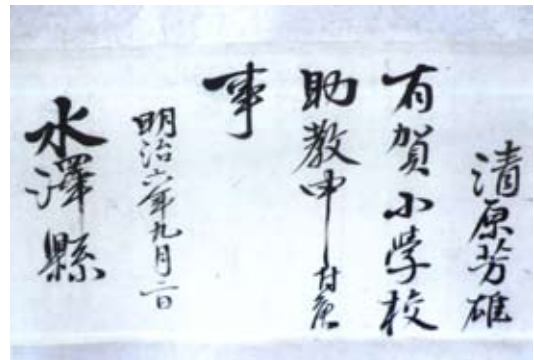 清原芳雄
有賀小学校
助教申付候
事
明治六年九月二日
水澤縣